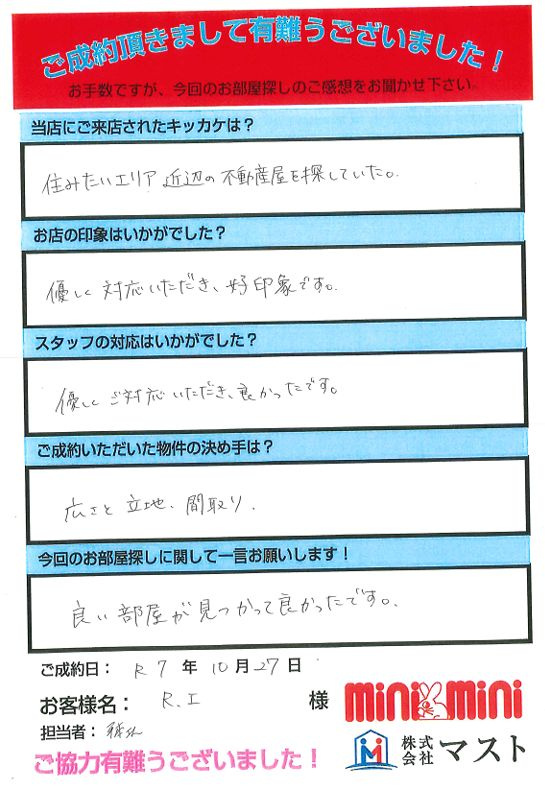 ご成約頂きまして有難うございました！
お手数ですが、今回のお部屋探しのご感想をお聞かせ下さい。
当店にご来店されたキッカケは？
住みたいエリア近辺の不動産屋を探していた。
お店の印象はいかがでした？
優しく対応いただき、好印象です。
スタッフの対応はいかがでした？
優しくご対応いただき、良かったです。
ご成約いただいた物件の決め手は？
広さと立地、間取り.
今回のお部屋探しに関して一言お願いします！
良い部屋が見つかって良かったです。
ご成約日： R7 年 10 月 27 日
お客様名： R.I 様
minimini
担当者：
株式会社 マスト
ご協力有難うございました！